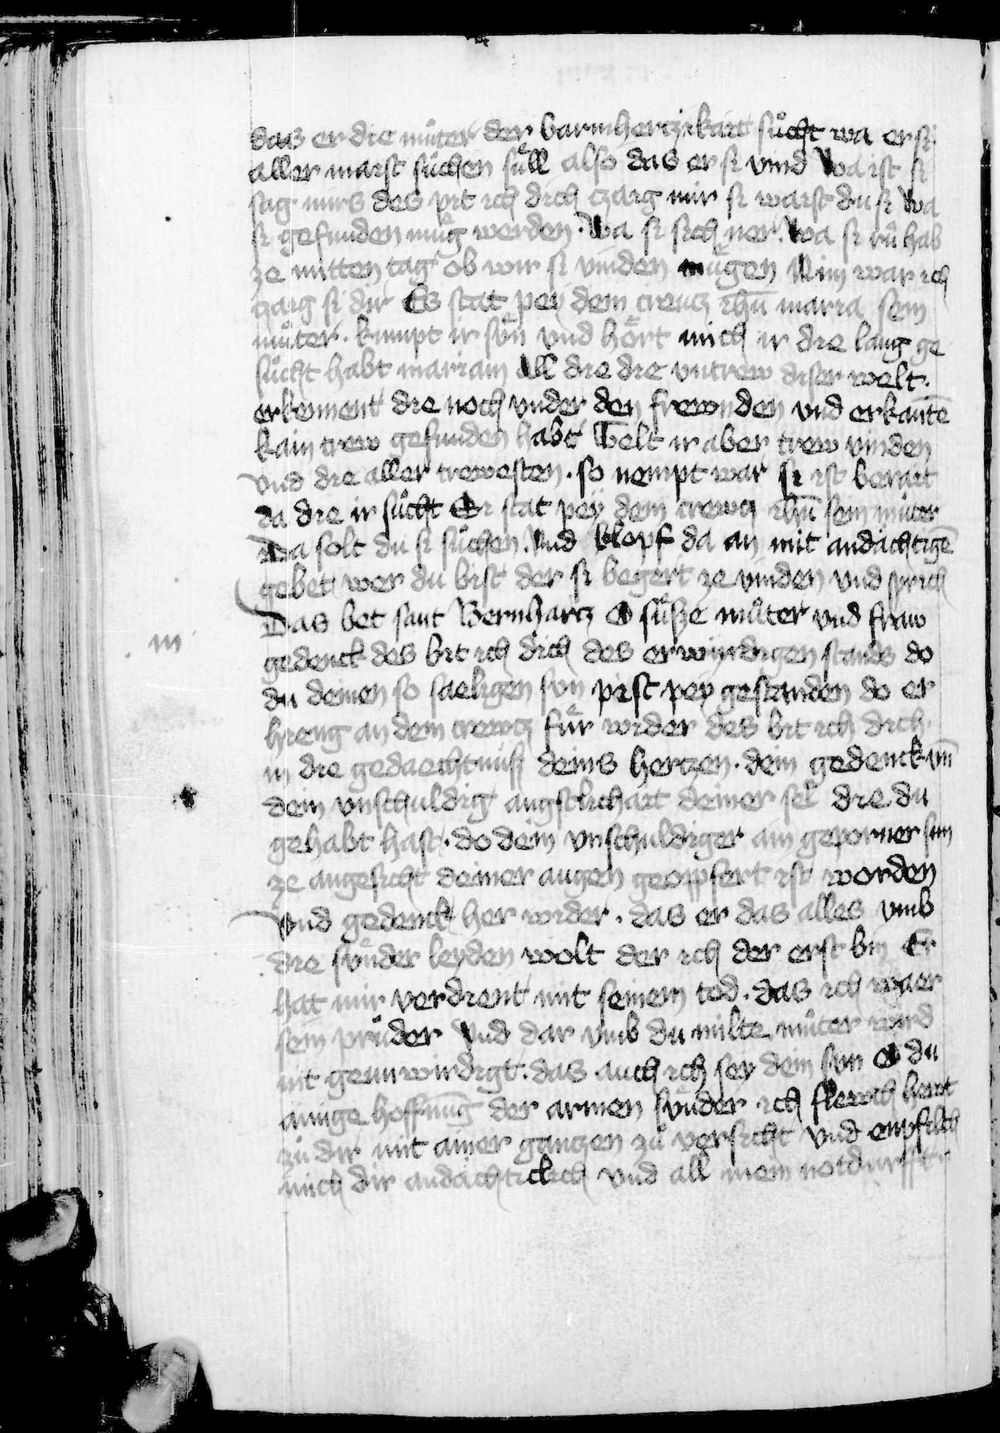 das er die můter der barmhertzikait sůcht wa er si
aller maist sůchen sůll also das er si vind Wa ist si
sag mirs des pit ich dich czaig mir si waist du si Wa
si gefunden můg werden · Wa si sich ner · Wa si rů hab
ze mitten tag ob wir si vinden můgen Nim war ich
czaig si dir Es stat pey dem creucz ihū maria sein
můter · kumpt ir sün vnd hört mich ir die lang ge
sůcht habt mariam All die die vntrew diser welt ·
erkennent die noch vnder den frewnden vnd erkantē
kain trew gefunden habt Welt ir aber trew vinden
vnd die aller trewesten · so nempt war si ist berait
da die ir sůcht Er stat pey dem crewcz ihū sein můter
Da solt du si sůchen · Vnd klopf da an mit andächtigē
gebet wer du bist der si begert ze vinden vnd sprich
Das bet sant Bernhartz O süsze můter vnd fraw
gedenck des bit ich dich des erwirdigen stands do
du deinen so saeligen sun pist pey gestanden do er
hieng an dem crewcz für wider des bit ich dich
in die gedaechtnüss deins hertzen · dein gedenck vn̄
dein vnschuldig angstlichait deiner sel die du
gehabt hast · do dein vnschuldiger ain geporner sun
ze angesicht deiner augen geopfert ist worden
Vnd gedenck her wider · das er das alles vmb
die sünder leyden wolt der ich der erst bin Er
hat mir verdient mit seinem tod · das ich waer
sein průder Vnd dar vmb du milte můter wird
nit geunwirdigt · das auch ich sey dein sun O du
ainige hoffnung der armen sünder · ich flewch hewt
zů dir mit ainer gantzen zů versicht vnd enpfilch
mich dir andächticlich vnd all mein notdurfft ·
m